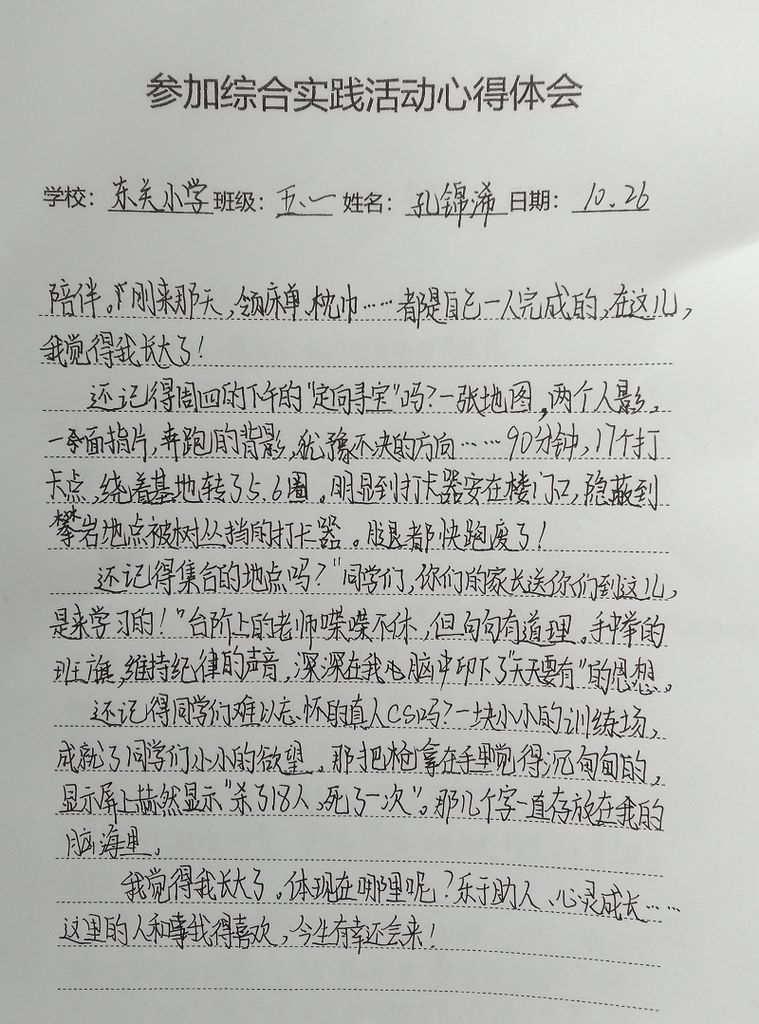 参加综合实践活动心得体会
学校：东关小学班级：五、一姓名：孔锦浠日期：10.26
陪伴。”刚来那天，领床单、枕巾……都是自己一人完成的，在这儿，
我觉得我长大了！
还记得周四的下午的“定向寻宝”吗？一张地图，两个人影，
一面指片，奔跑的背影，犹豫不决的方向……90分钟，17个打
卡点，绕着基地转了5.6圈。明显到打卡器安在楼门口，隐蔽到
攀岩地点被树丛挡的打卡器。腿都快跑废了！
还记得集合的地点吗？“同学们，你们的家长送你们到这儿，
是来学习的！”台阶上的老师喋喋不休，但句句有道理。手中举的
班旗，维持纪律的声音，深深在我电脑中印下了“天天要有”的思想。
还记得同学们难以忘怀的真人CS吗？一块小小的训练场，
成就了同学们小小的欲望。那把枪拿在手里觉得沉甸甸的，
显示屏上赫然显示“杀了18人，死了一次”。那几个字一直存放在我的
脑海里。
我觉得我长大了。体现在哪里呢？乐于助人、心灵成长……
这里的人和事我得喜欢，今生有幸还会来！